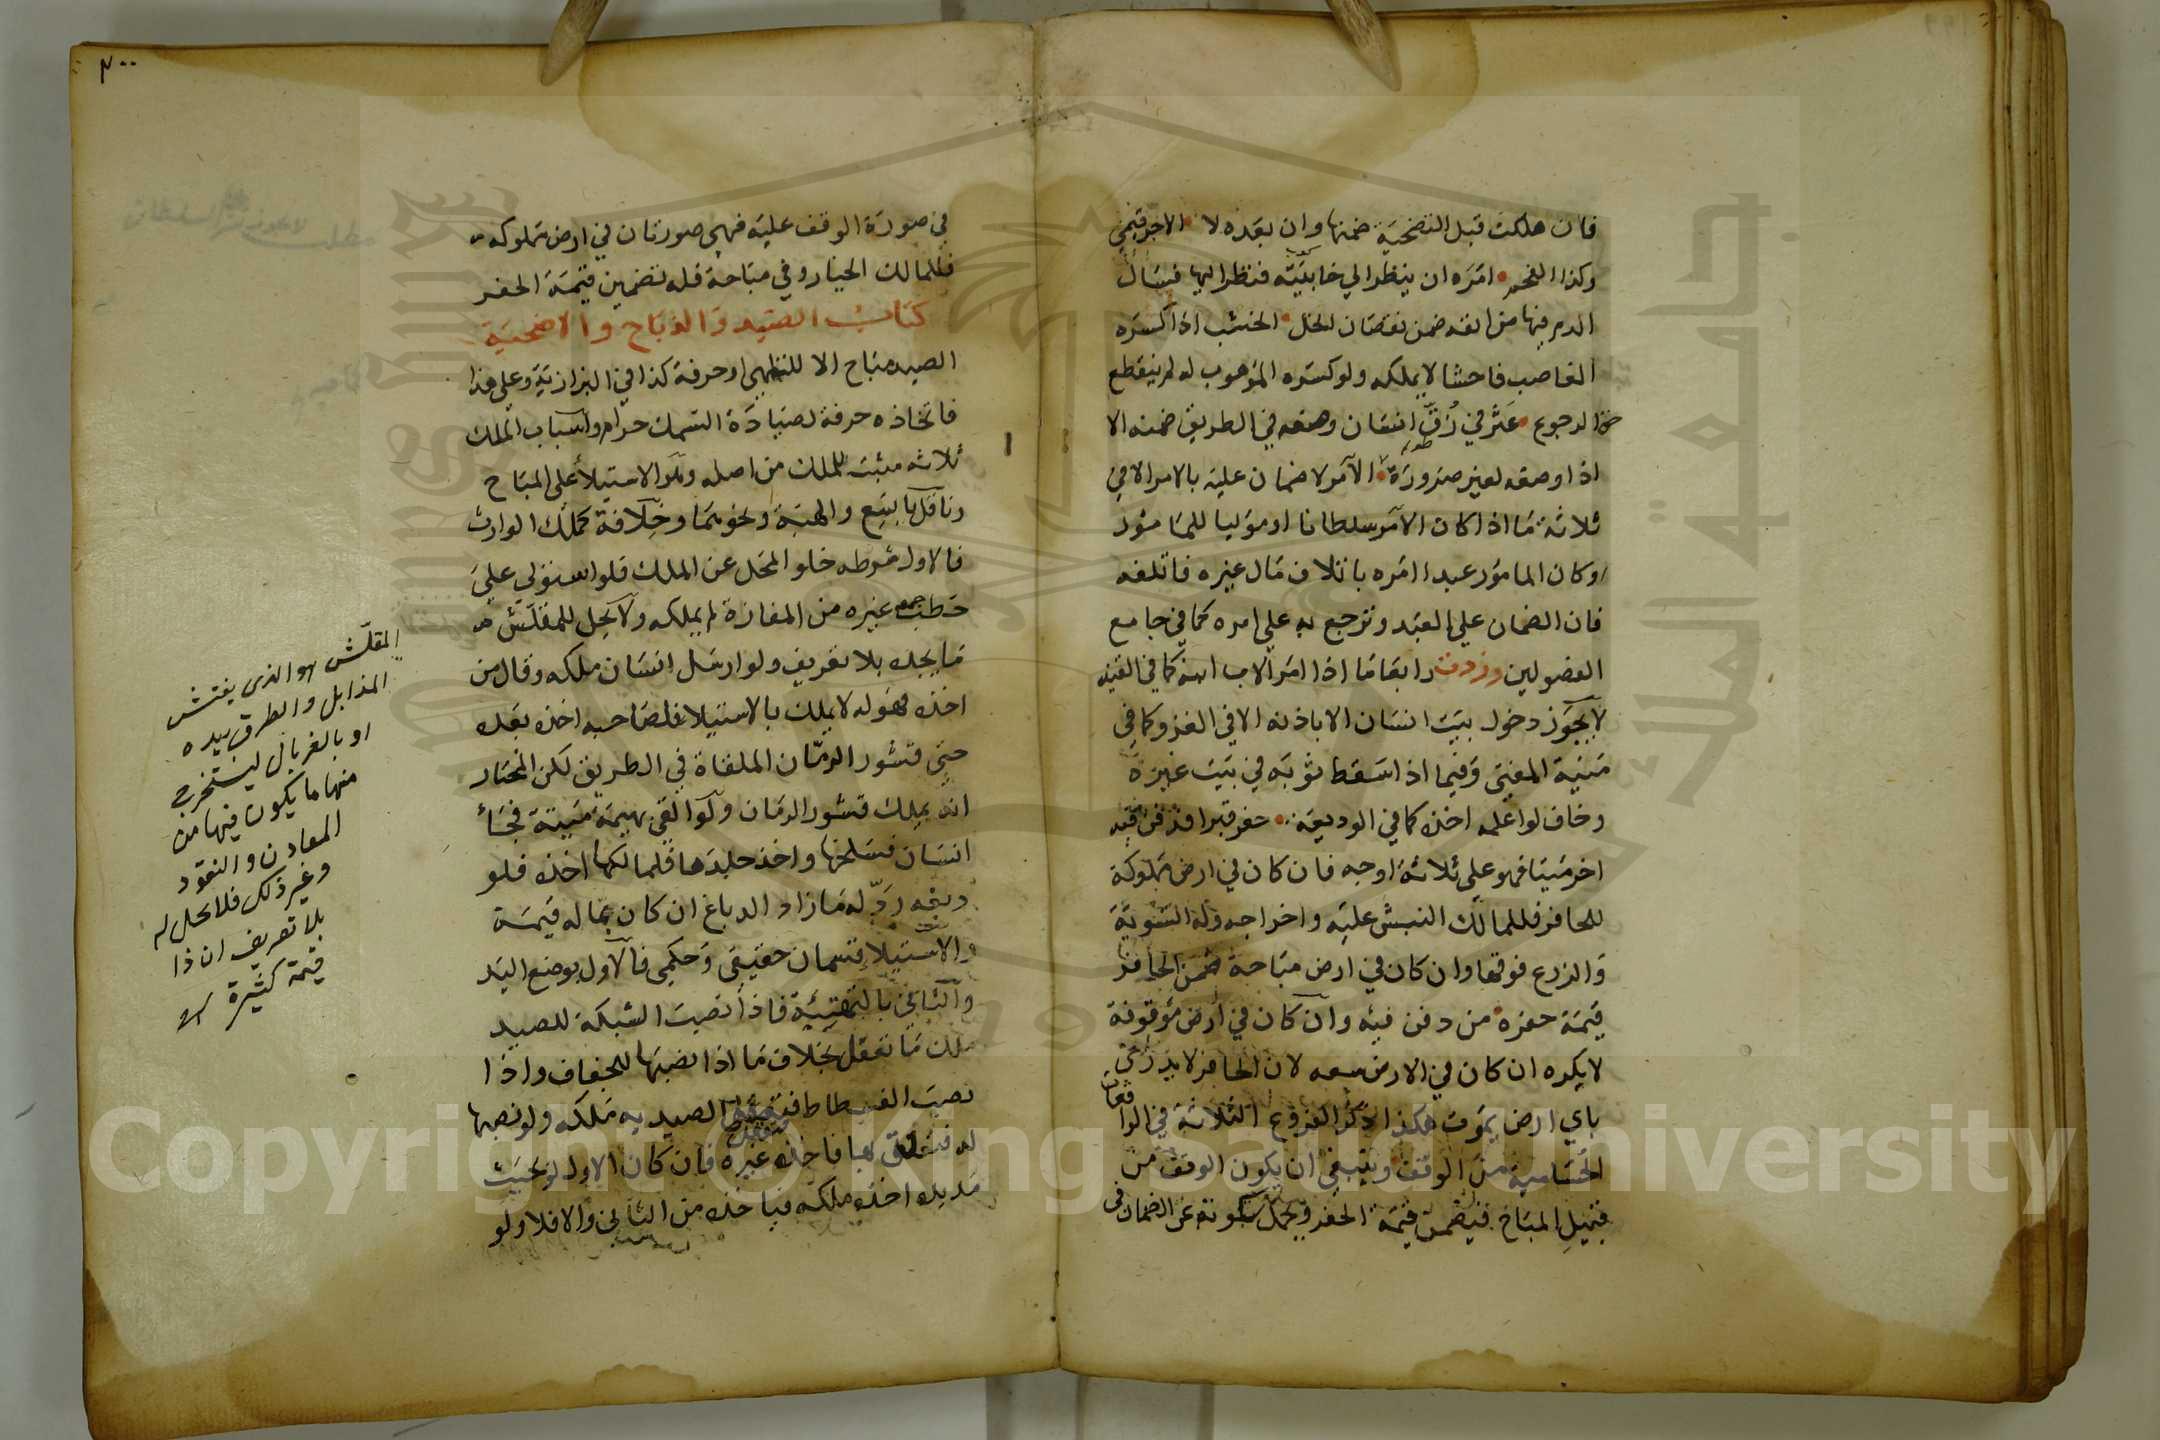 فان هلكت قبل التضحية ضمنها وان بعده لا الاجر قيمي
وكذا الفحم امره ان ينظر الي خابيته فنظر اليها فسال
الدم فيها من انفه ضمن نقصان الخل الخشب اذا كسره
الغاصب فاحشا لا يملكه ولو كسره الموهوب له لم ينقطع
حق الرجوع عثر في زق انسان وضعه في الطريق ضمنه الا
اذا وضعه لغير ضرورة الآمر لا ضمان عليه بالامر الا في
ثلاثة ما اذا كان الآمر سلطانا او موليا للمامور
او كان المامور عبدا امره باتلاف مال غيره فاتلفه
فان الضمان علي العبد وترجع به علي امره كما في جامع
الفصولين وزدت رابعا ما اذا امر الاب ابنه كما في القنية
لا يجوز دخول بيت انسان الا باذنه الا في الغزو كما في
منية المفتي وفيما اذا سقط ثوبه في بيت غيره
وخاف لو اعلمه اخذه كما في الوديعة حفر قبرا فدفن فيه
اخر ميتا فهو على ثلاثة اوجه فان كان في ارض مملوكة
للحافر فللمالك النبش عليه واخراجه وله التسوية
والزرع فوقها وان كان في ارض مباحة ضمن الحافر
قيمة حفره من دفن فيه وان كان في ارض موقوفة
لا يكره ان كان في الارض سعه لان الحافر لا يدري
باي ارض يموت هكذا ذكر الفروع الثلاثة في الواقعات
الحسامية من الوقف وينبغي ان يكون الوقف من
قبيل المباح فيضمن قيمة الحفر ويحمل سكوته عن الضمان في
٢٠٠
في صورة الوقف عليه فهي صورتان في ارض مملوكه
فللمالك الخيار وفي مباحة فله تضمين قيمة الحفر
كتاب الصيد والذبائح والاضحية
الصيد مباح الا للتلهي او حرفة كذا في البزازية وعلى هذا
فاتخاذه حرفة لصيادة السمك حرام واسباب الملك
ثلاثه مثبت للملك من اصله وهو الاستيلا على المباح
وناقل بالبيع والهبة ونحوهما وخلافة كملك الوارث
فالاول شرطه خلو المحل عن الملك فلو استولى على
حطب جمعه غيره من المفازة لم يملكه ولا يحل للمقلش
ما يجده بلا تعريف ولو ارسل انسان ملكه وقال من
اخذه فهو له لا يملك بالاستيلا فلصاحبه اخذه بعده
حتى قشور الرمان الملقاة في الطريق لكن المختار
انه يملك قشور الرمان ولو القي بهيمة ميتة فجاء
انسان فسلخها واخذ جلدها فلمالكها اخذه فلو
دبغه رد له ما زاد الدباغ ان كان بما له قيمة
والاستيلا قسمان حقيقي وحكمي فالاول بوضع اليد
والثاني بالتهيئة فاذا نصبت الشبكة للصيد
ملك ما تعقل بخلاف ما اذا نصبها للجفاف واذا
نصب الفسطاط فتعقل الصيد به ملكه ولو نصبها
له فتعلق بها فاخذه غيره فان كان الاول بحيث
مد يده اخذه ملكه فياخذه من الثاني والا فلا ولو
المقلش هو الذي يفتش
المزابل والطرق بيده
او بالغربال ليستخرج
منها ما يكون فيها من
المعادن والنقود
وغير ذلك فلا يحل له
بلا تعريف ان ذا
قيمة كثيرة اه